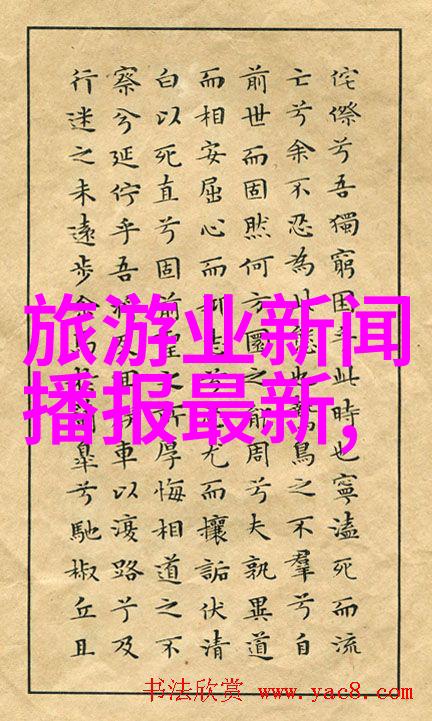 旅游业新闻
播报最新,
侘傺兮吾獨窮困乎此時也寧溘死而流
亡兮余不忍為此態也鷙鳥之不羣兮自
前世而固然何方圜之能周兮夫孰異道
而相安屈心而抑志兮尤而攘詬伏清
白以死直兮固前聖之所厚悔相道之不
察兮延佇乎吾反回車以復路兮及
行迷之未遠步余馬皋兮馳椒丘且
书法欣赏 www.yac8.com